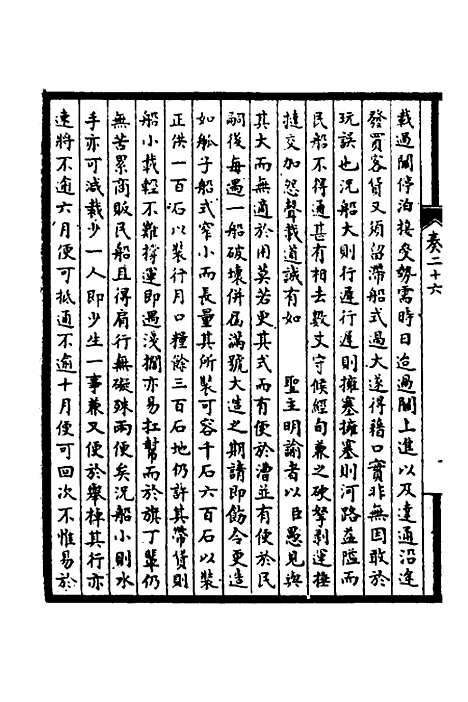 載過閘停泊接受勢需時日迨過閘上進以及達通沿途
發買客貨又須留滯船式過大遂得藉口實非無因敢於
玩誤也況船大則行遲行遲則擁塞擁塞則河路益隘而
民船不得通甚有相去數丈守候經旬兼之硬拏剥運捶
撻交加怨聲載道誠有如 聖主明諭者以臣愚見與
其大而無適於用莫若更其式而有便於漕並有便於民
嗣後每遇一船破壞併屆滿號大造之期請即飭令更造
如艍子船式窄小而長量其所裝可容千石六百石以裝
正供一百石以裝行月口糧餘三百石地仍許其帶貨則
船小載輕不難撐運即遇淺擱亦易扛幫而於旗丁輩仍
無苦累商販民船且得肩行無礙殊兩便矣況船小則水
手亦可減裁少一人即少生一事兼又便於舉棹其行亦
速將不逾六月便可抵通不逾十月便可回次不惟易於
奏二十六